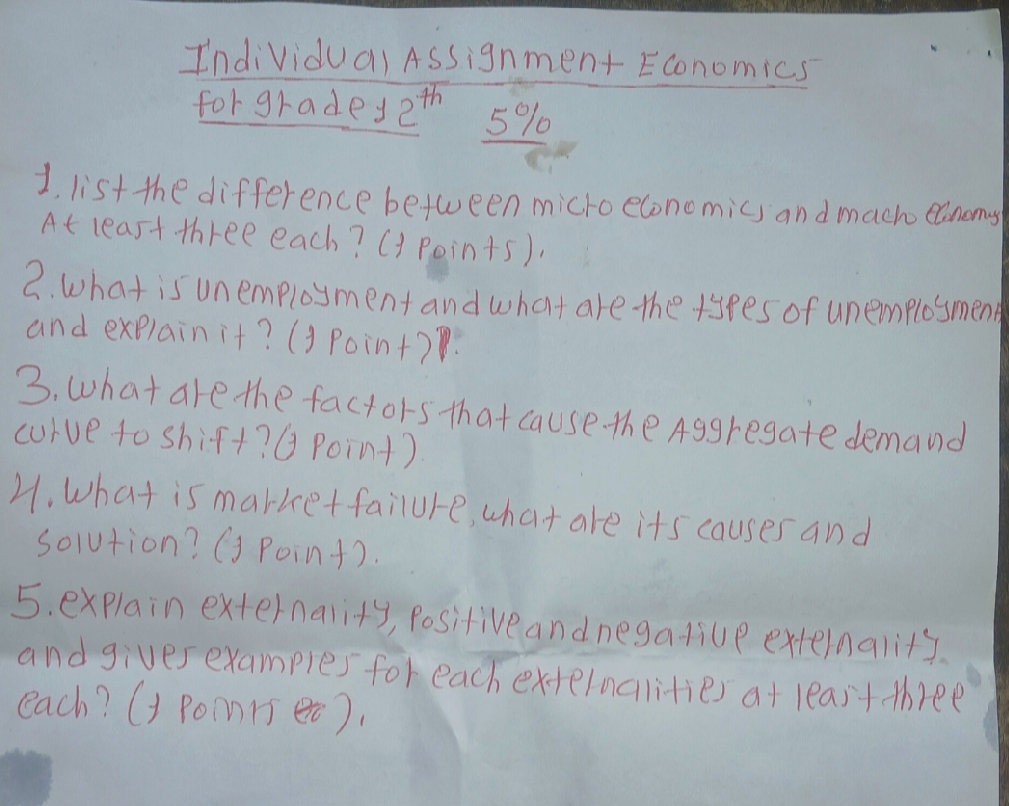 Individual Assignment Economics
for grade 12th 5%
1. list the difference between micro economics and macro economy
At least three each? (1 Points).
2. What is unemployment and what are the types of unemployment
and explain it? (1 Point).
3. What are the factors that cause the Aggregate demand
curve to shift? (1 Point)
4. What is market failure, what are its causes and
solution? (1 Point).
5. explain externality, Positive and negative externality
and gives examples for each externalities at least three
each? (1 Points).